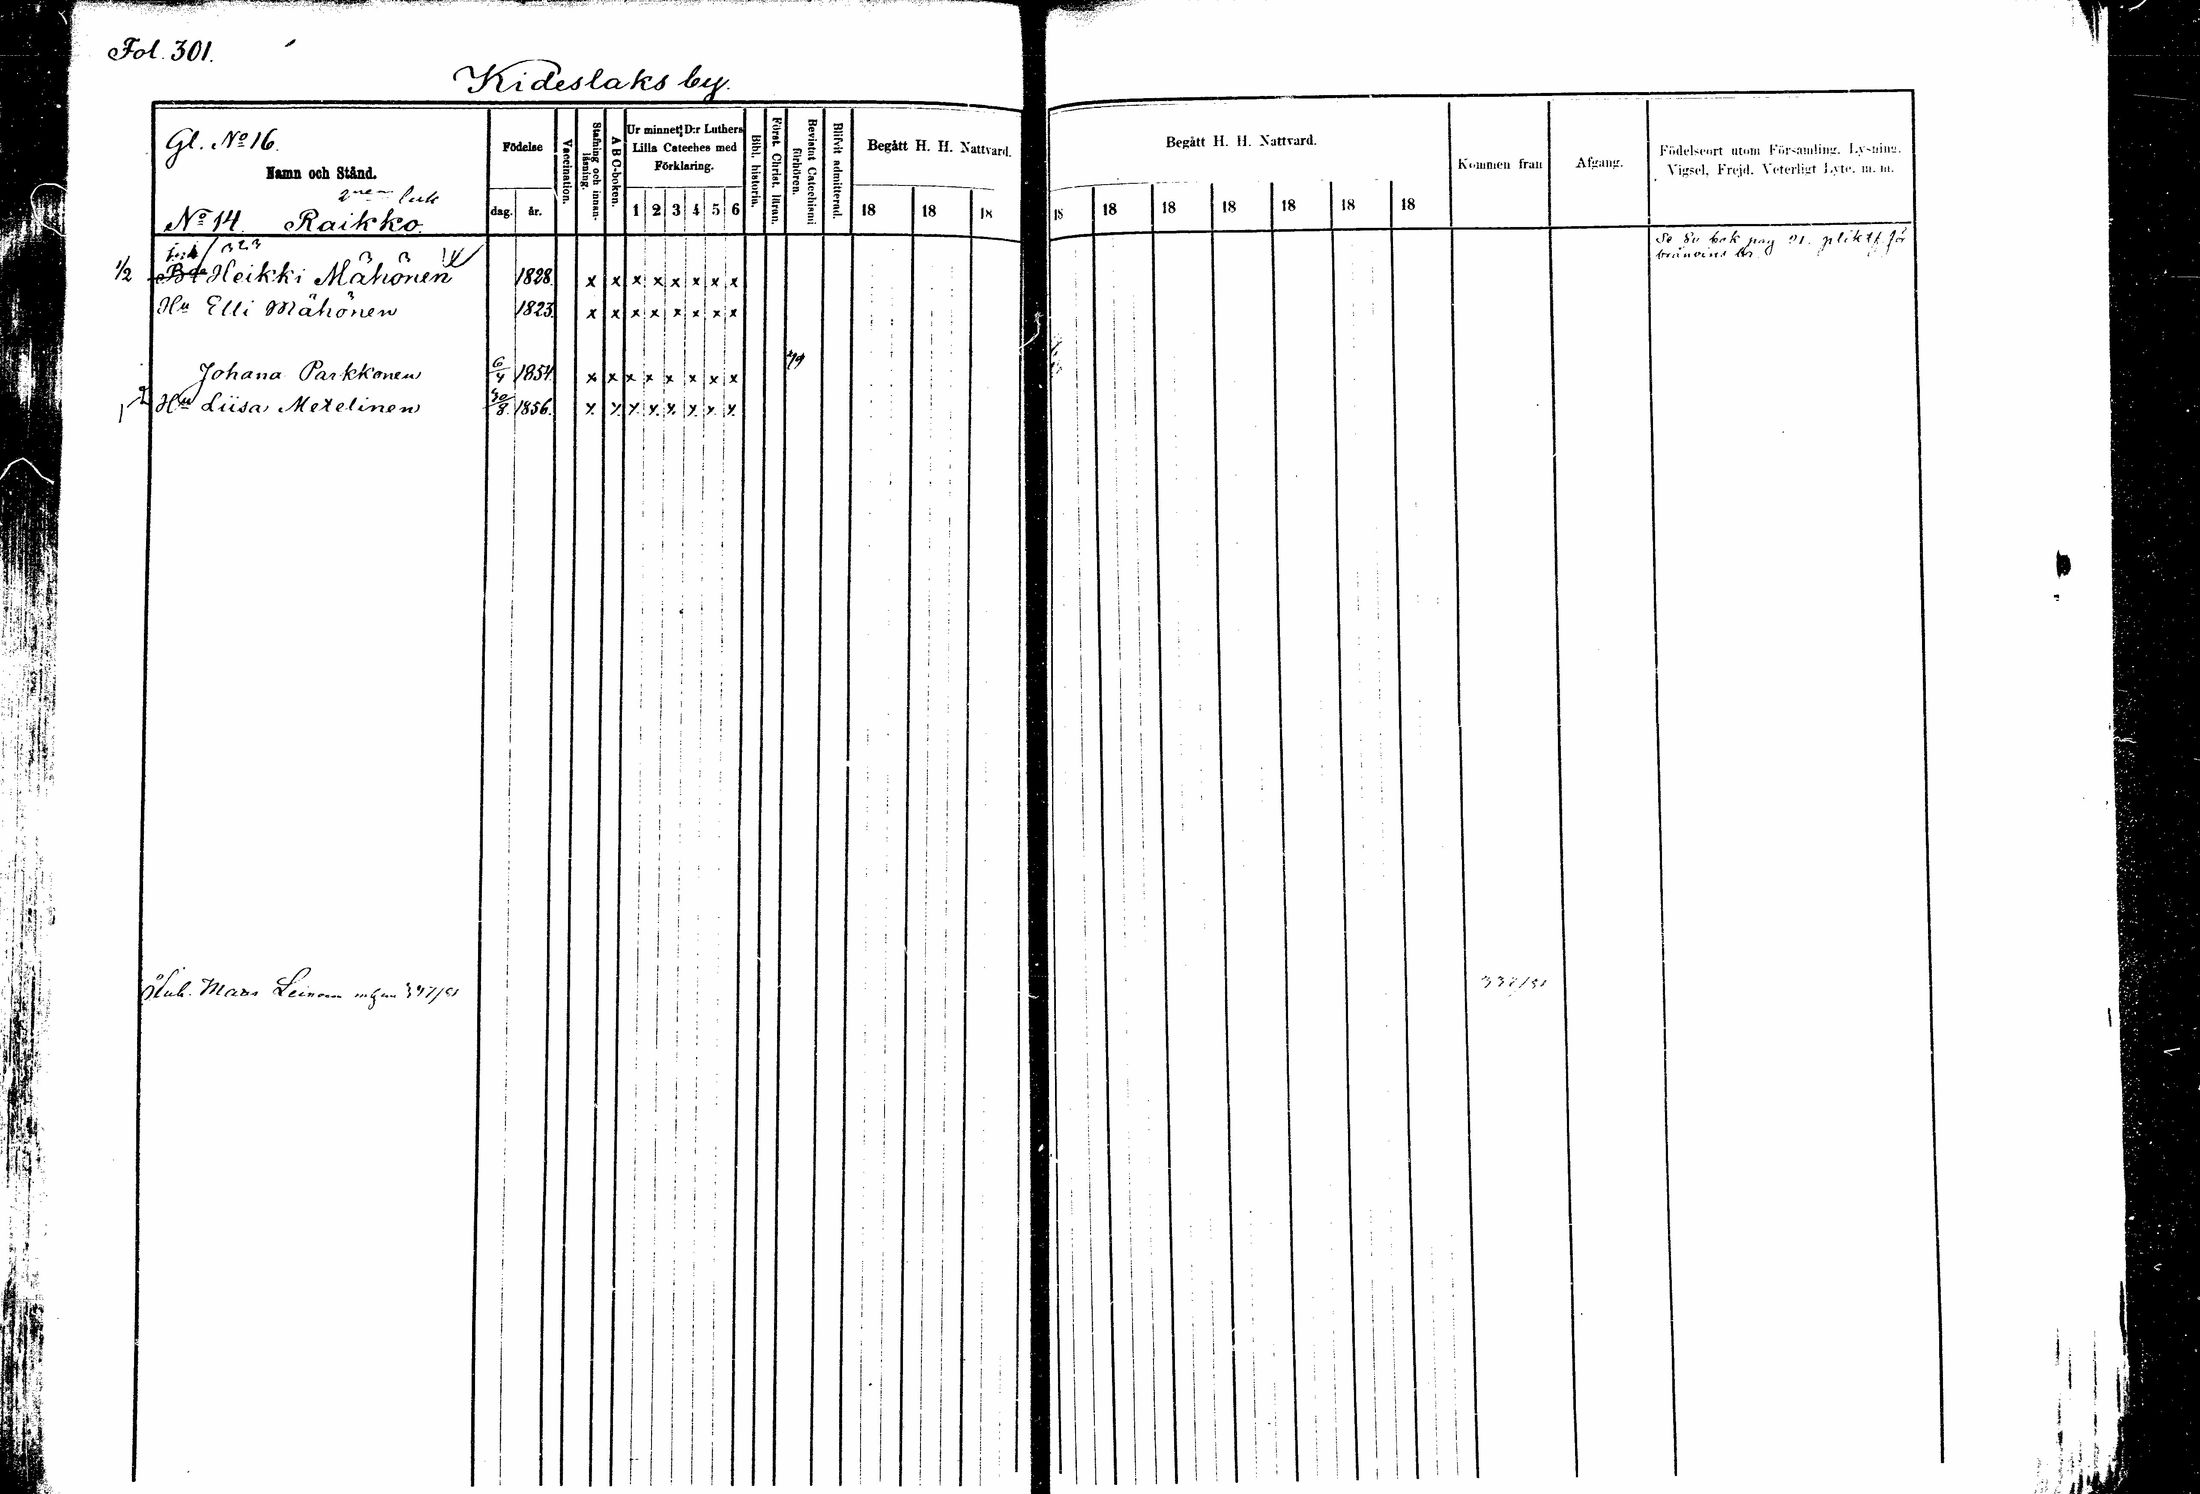 Fol. 301.
Kideslaks by.
Gl. No 16.
Namn och Stånd.
No 14. Raikko.
Födelse
dag. år.
Vaccination.
Stafning och innanläsning.
A B C-boken.
Ur minnet: D:r Luthers
Lilla Cateches med
Förklaring.
1 2 3 4 5 6
Bibl. historia.
Först. Christ. läran.
Bevistat Catechismi förhören.
Blifvit admitterad.
Begått H. H. Nattvard.
18 18 18
Begått H. H. Nattvard.
18 18 18 18 18 18 18
Kommen från
Afgang.
Födelseort utom Församling. Lysning.
Vigsel, Frejd. Veterligt Lyte. m. m.
323
1/2 Heikki Mähönen 1828. x x x x x x x x
Hu Elli Mähönen 1823. x x x x x x x x
Johana Parkkonen 6/4 1854. x x x x x x x x
Hu Liisa Metelinen 30/8 1856. x x x x x x x x
Se bok pag 91. för
bränvins
Maria 337/81
337/81